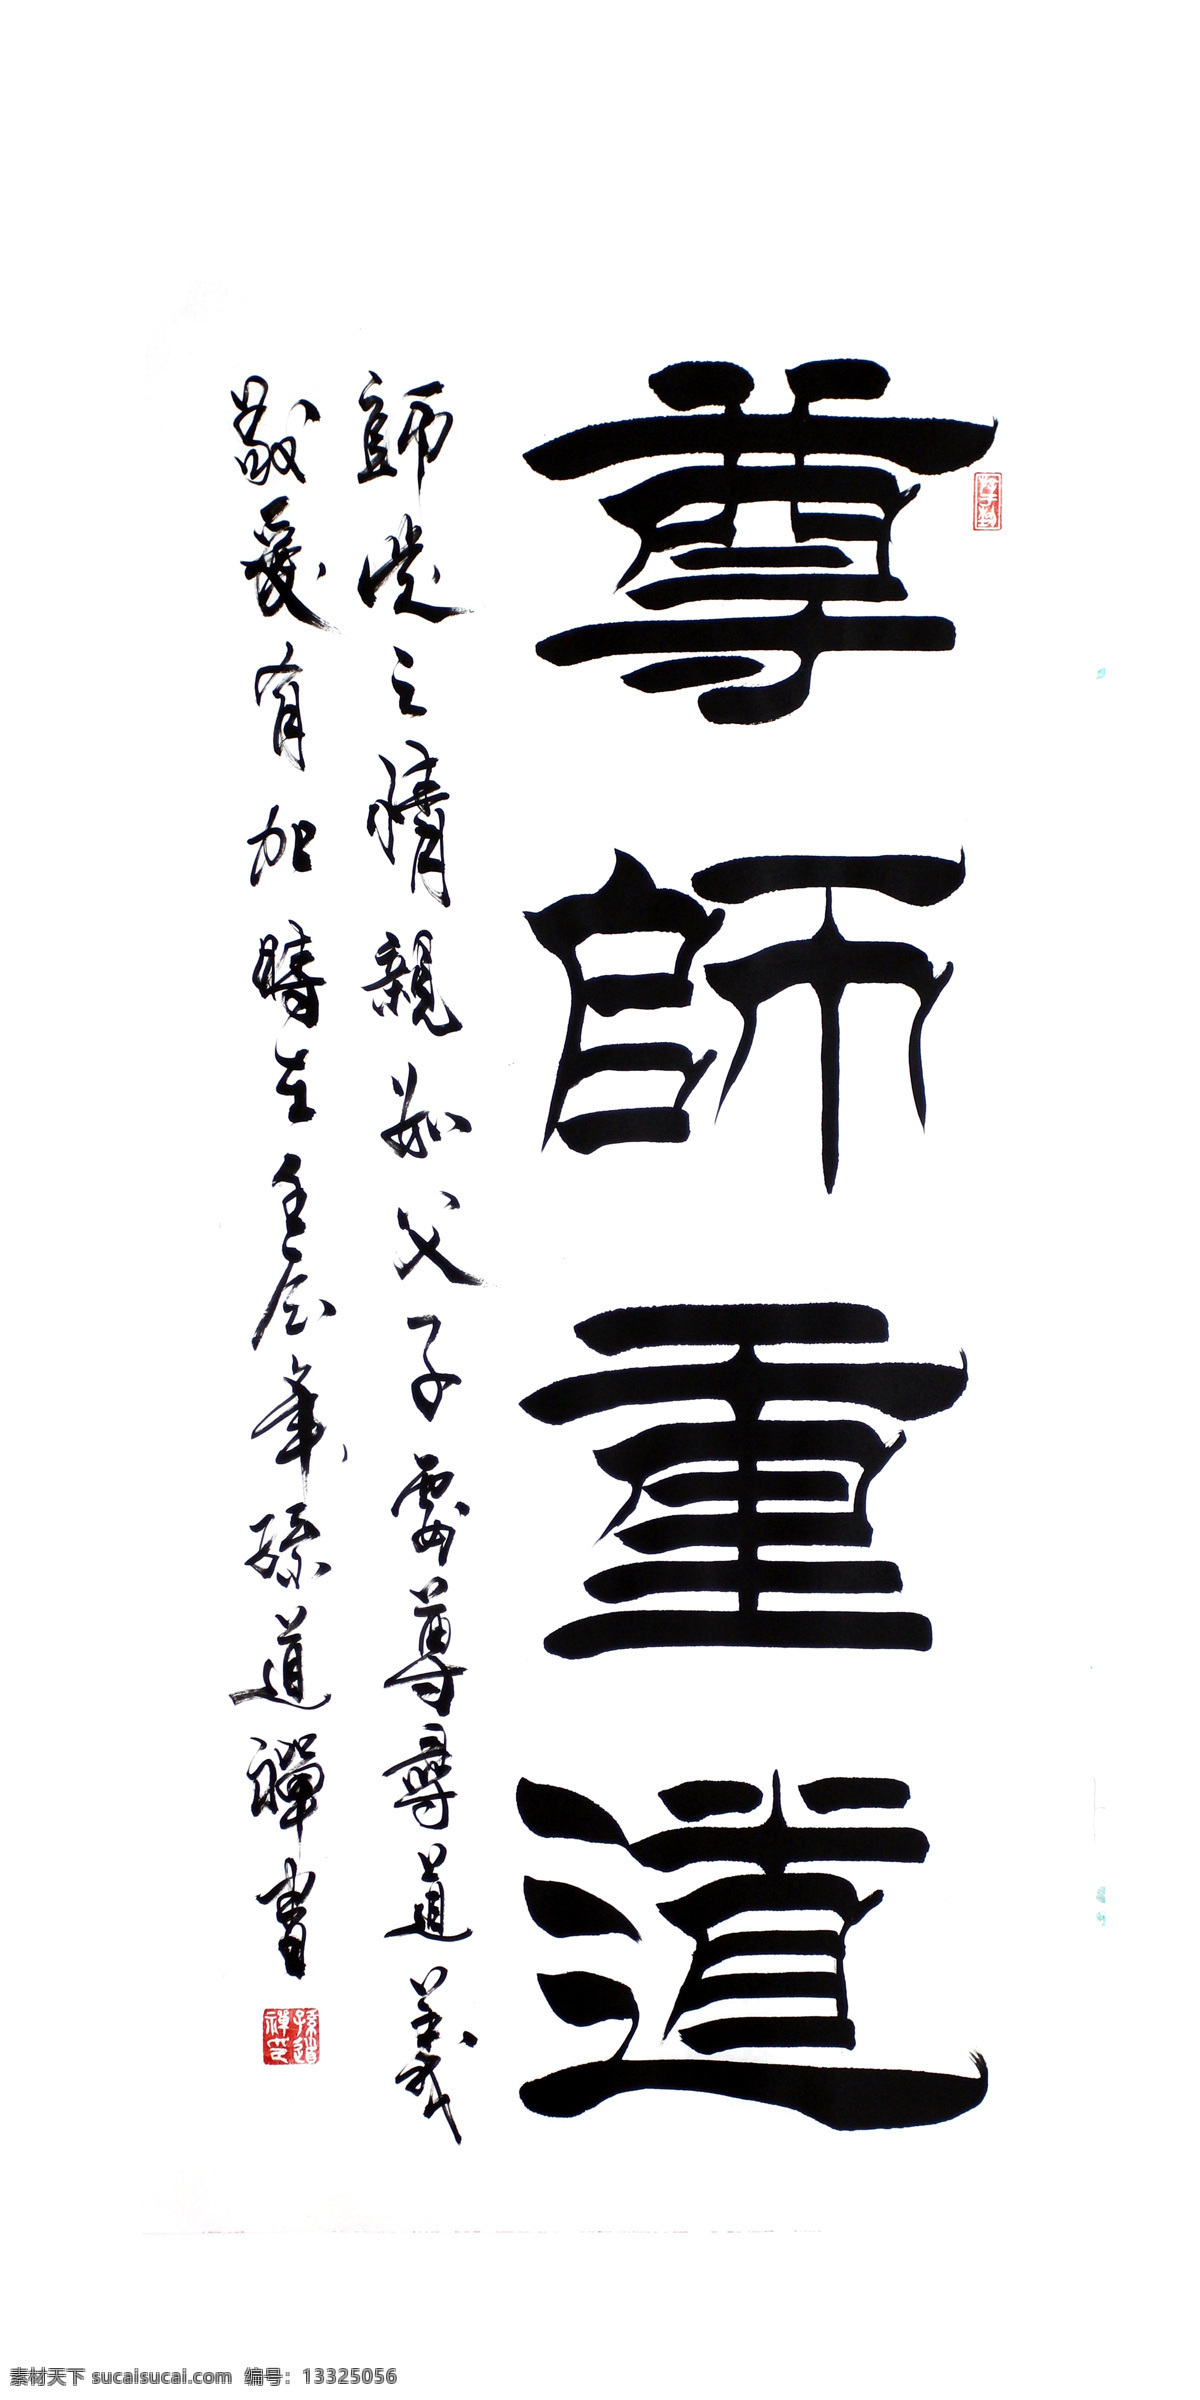 尊師重道
師之情親如父子要尊道義
敬愛有加時在壬辰年孫道禪書
孫道禪印
素材天下 sucaisucai.com 编号：13325056